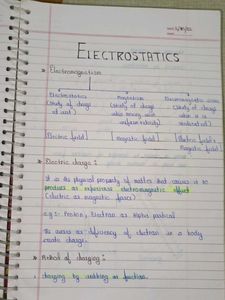 ELECTROSTATICS
Electromagnetism
Electrostatics Magnetism Electromagnetic
(study of charge (study of charge (study of charge
at rest) when moving with when it is
uniform velocity) accelerated)
[Electric field] [magnetic field] [Electric field +
magnetic field]
Electric charge :
It is the physical property of matter that causes it to
produce or experience electromagnetic effect
(electric or magnetic force)
e.g : Proton, Electron or Alpha
It is excess or deficiency of electron in a body
create charge.
Method of charging :
charging by rubbing or friction.